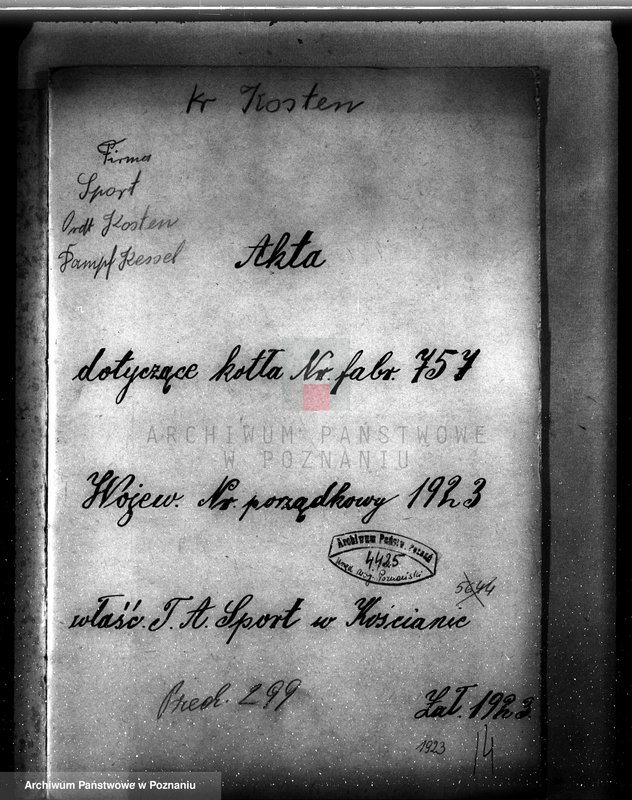 kr Kosten
Firma
Sport
Ordt Kosten
Dampf Kessel
Akta
dotyczące kotła Nr. fabr. 757
ARCHIWUM PAŃSTWOWE
W POZNANIU
Wojew. Nr. porządkowy 1923
Archiwum Państw. Poznań
4425
Urząd Woj. Poznański
5644
właść. T. A. Sport w Kościanie
299
Zał. 1923
1923
14
Archiwum Państwowe w Poznaniu